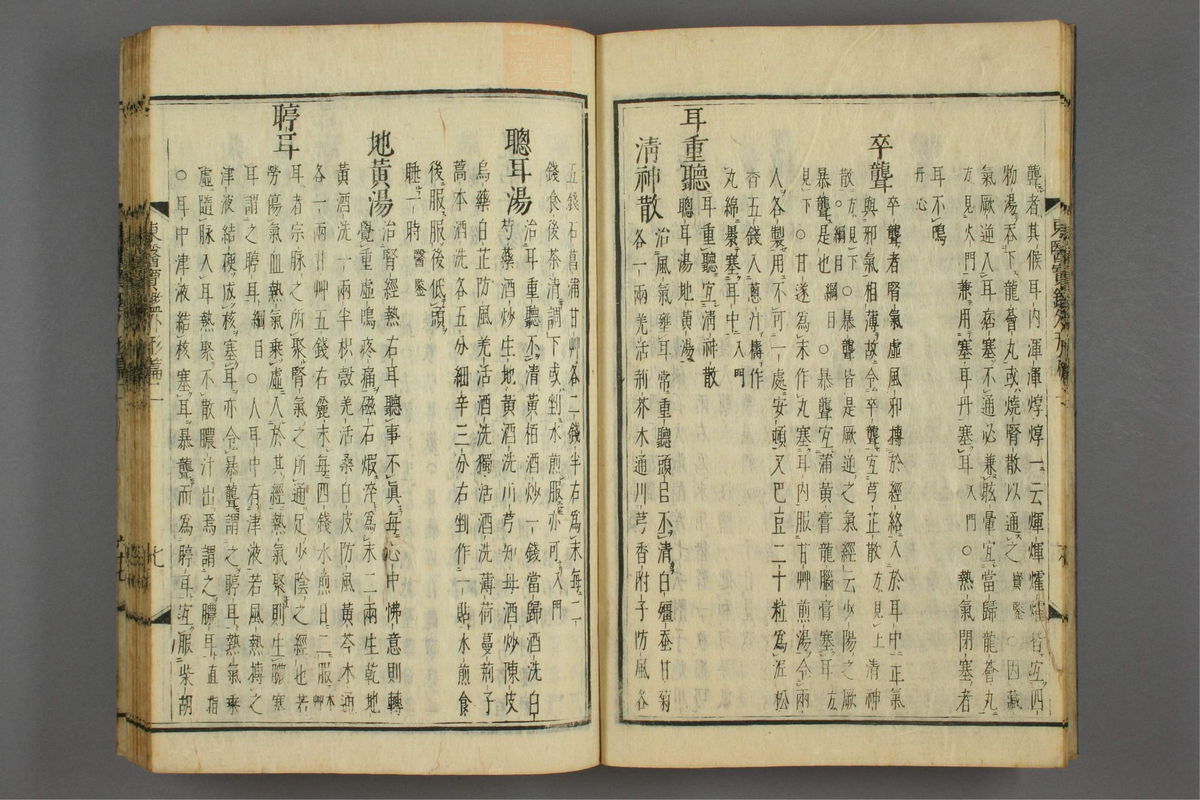 聾者其候耳内渾渾焞焞一云煇煇爟爟皆宜四
物湯吞下龍薈丸或燒腎散以通之 寶鑒 ○因藏
氣厥逆入耳痞塞不通必兼眩暈宜當歸龍薈丸
方見火門兼用塞耳丹塞耳 入門 ○熱氣閉塞者
耳不鳴
丹心
卒聾
卒聾者腎氣虛風邪搏於經絡入於耳中正氣
與邪氣相薄故令卒聾宜芎芷散 方見上 清神
散 方見下 ○暴聾皆是厥逆之氣經云少陽之厥
暴聾是也 綱目 ○暴聾宜蒲黃膏龍腦膏塞耳 方
見下 ○甘遂為末作丸塞耳内服甘艸煎湯令兩
人各製用不可一處安頓又巴豆二十粒為泥松
香五錢入蔥汁擣作
丸綿裹塞耳中 入門
耳重聽
耳重聽宜清神散
聰耳湯地黃湯
清神散
治風氣壅耳常重聽頭目不清白殭蚕甘菊
各一兩羌活荊芥木通川芎香附子防風各
東醫寶鑑外形篇二
五錢石菖蒲甘艸各二錢半右為末每二
錢食後茶清調下或剉水煎服亦可 入門
聰耳湯
治耳重聽不清黃栢酒炒一錢當歸酒洗白
芍藥酒炒生地黃酒洗川芎知母酒炒陳皮
烏藥白芷防風羌活酒洗獨活酒洗薄荷蔓荊子
藁本酒洗各五分細辛三分右剉作一貼水煎食
後服服後低頭
睡一時 醫鑒
地黃湯
治腎經熱右耳聽事不眞每心中怫意則轉
覺重虛鳴疼痛磁石煆淬為末二兩生乾地
黃酒洗一兩半枳殼羌活桑白皮防風黃芩木通
各一兩甘艸五錢右麤末每四錢水煎日二服 本艸
聤耳
耳者宗脉之所聚腎氣之所通足少陰之經也若
勞傷氣血熱氣乘虛入於其經熱氣聚則生膿塞
耳謂之聤耳 綱目 ○人耳中有津液若風熱搏之
津液結硬成核塞耳亦令暴聾謂之聤耳熱氣乘
虛隨脉入耳熱聚不散膿汁出焉謂之膿耳 直指
○耳中津液結核塞耳暴聾而為聤耳宜服柴胡
東醫寶鑑外形篇二
七